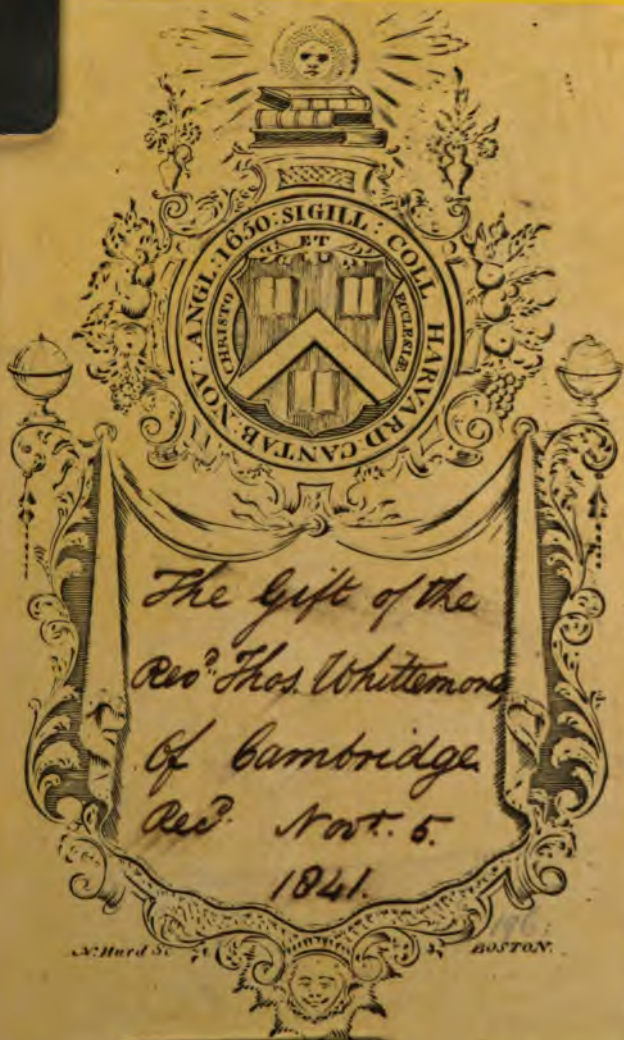 SIGILL: COLL HARVARD: CANTAB: NOV: ANGL: 1650:
ET
CHRISTO
ECCLESIÆ
The Gift of the
Rev.d Thos. Whittemore
Of Cambridge
Rec.d Novr. 5.
1841.
N. Hurd Sc
BOSTON.